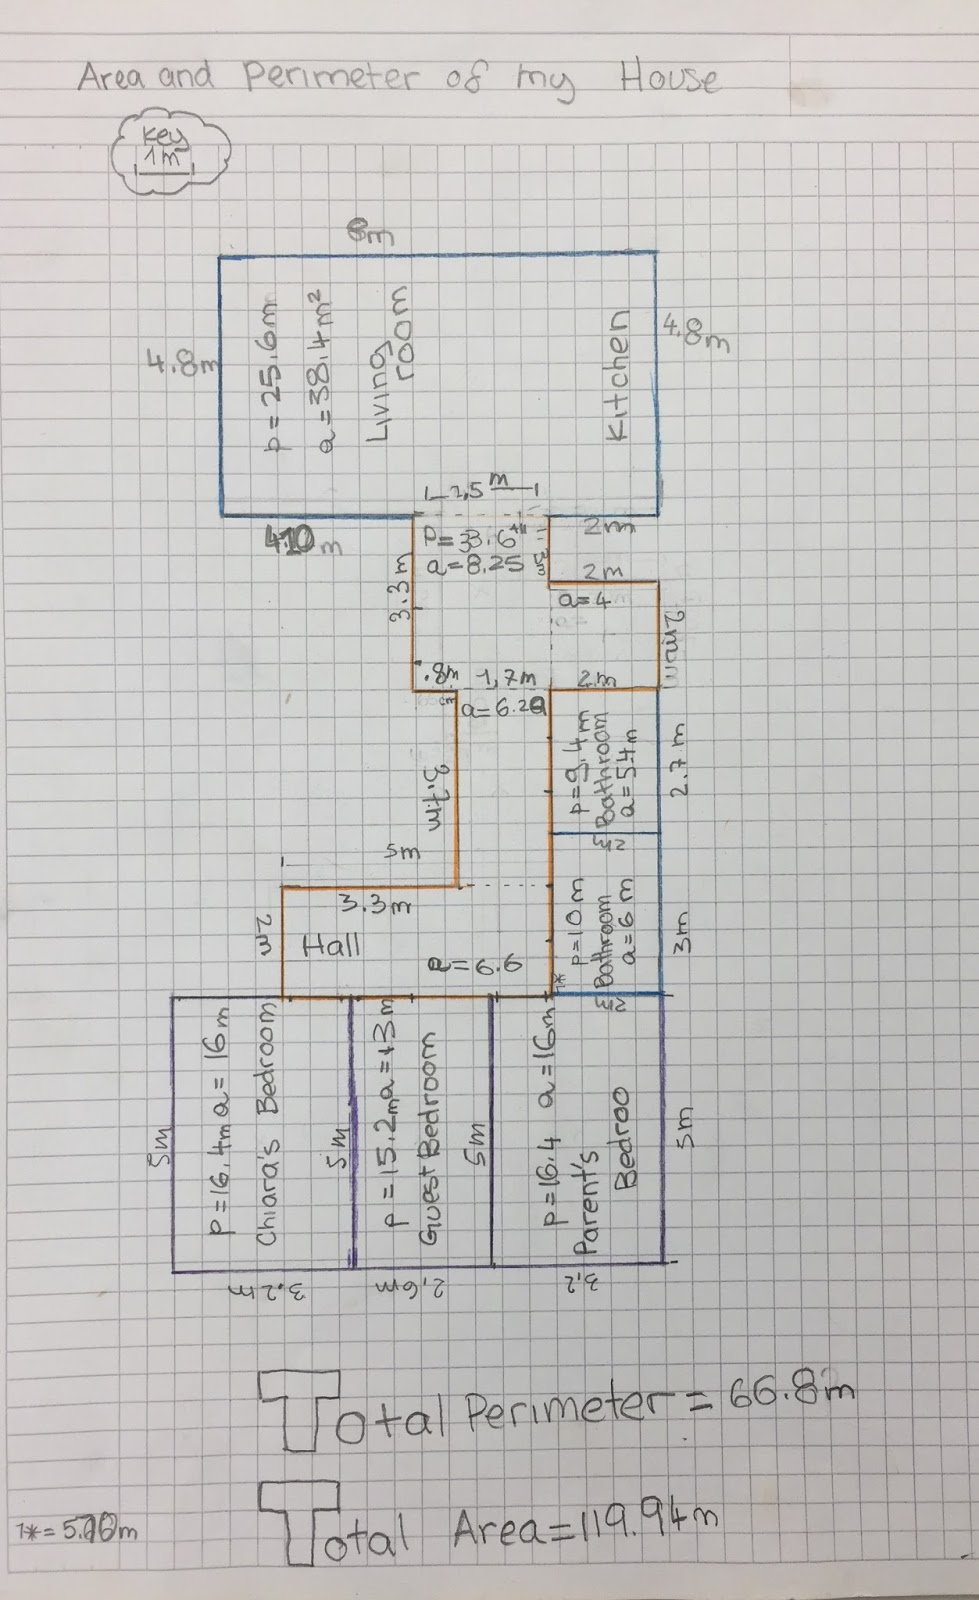 Area and Perimeter of my House
Key
1m
8m
4.8m
p=25.6m
a=38.4m²
Living
room
Kitchen
4.8m
2,5 m
2m
a=8.25
3.3m
2m
a=4
2m
.8m
1,7m
2m
p=9.4m
Bathroom
a=5.4m
2.7m
5m
3.3m
2m
Hall
a=6.6
p=10m
Bathroom
a=6m
2m
3m
1*
5m
p=16.4m a=16m
Chiara's Bedroom
5m
p=15.2m a=13m
Guest Bedroom
5m
p=16.4 a=16m
Parent's
Bedroo
5m
3.2m
2,6m
3,2
Total Perimeter = 66.8m
Total Area=119.94m